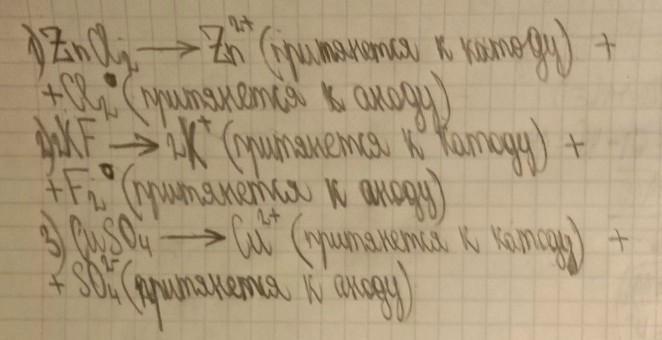 1) ZnCl₂ → Zn²⁺ (притянется к катоду) +
+ Cl₂⁰ (притянется к аноду)
2) 2KF → 2K⁺ (притянется к катоду) +
+ F₂⁰ (притянется к аноду)
3) CuSO₄ → Cu²⁺ (притянется к катоду) +
+ SO₄²⁻ (притянется к аноду)